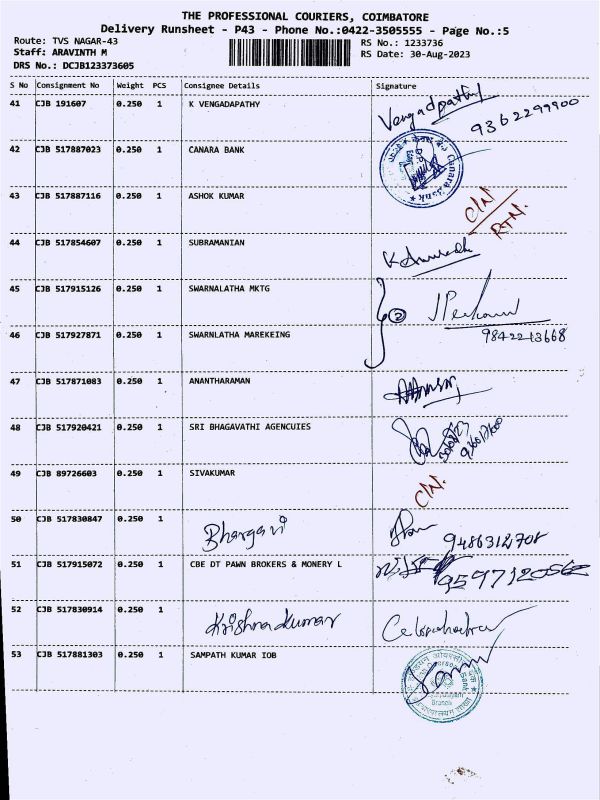 THE PROFESSIONAL COURIERS, COIMBATORE
Delivery Runsheet - P43 - Phone No.:0422-3505555 - Page No.:5
Route: TVS NAGAR-43 RS No.: 1233736
Staff: ARAVINTH M RS Date: 30-Aug-2023
DRS No.: DCJB123373605
S No Consignment No Weight PCS Consignee Details Signature
41 CJB 191607 0.250 1 K VENGADAPATHY Vengadpathy
9362299900
42 CJB 517887023 0.250 1 CANARA BANK
43 CJB 517887116 0.250 1 ASHOK KUMAR C/N
RTN.
44 CJB 517854607 0.250 1 SUBRAMANIAN
45 CJB 517915126 0.250 1 SWARNALATHA MKTG 2
46 CJB 517927871 0.250 1 SWARNLATHA MAREKEING 9842213668
47 CJB 517871083 0.250 1 ANANTHARAMAN
48 CJB 517920421 0.250 1 SRI BHAGAVATHI AGENCUIES
49 CJB 89726603 0.250 1 SIVAKUMAR C/N.
50 CJB 517830847 0.250 1 Bhargavi 9486312708
51 CJB 517915072 0.250 1 CBE DT PAWN BROKERS & MONERY L
52 CJB 517830914 0.250 1 Krishna kumar
53 CJB 517881303 0.250 1 SAMPATH KUMAR IOB